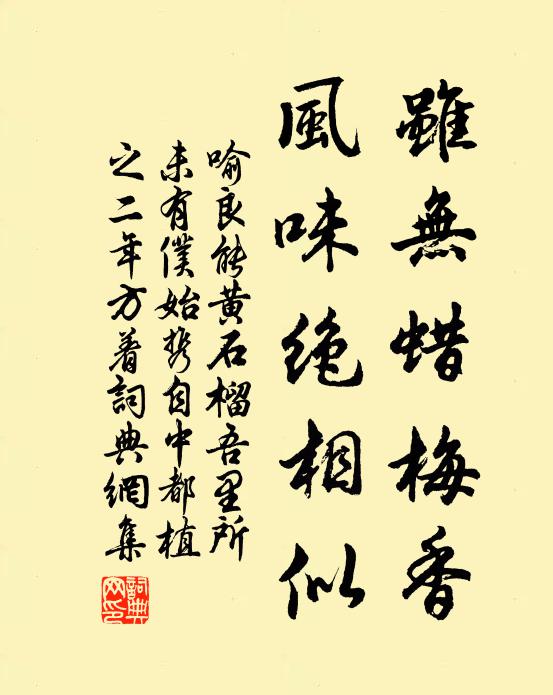 雖無蜡梅香
風味絶相似
喻良能黄石榴吾里所
未有僕始携自中都植
之二年方着詞典網集
詞典网印